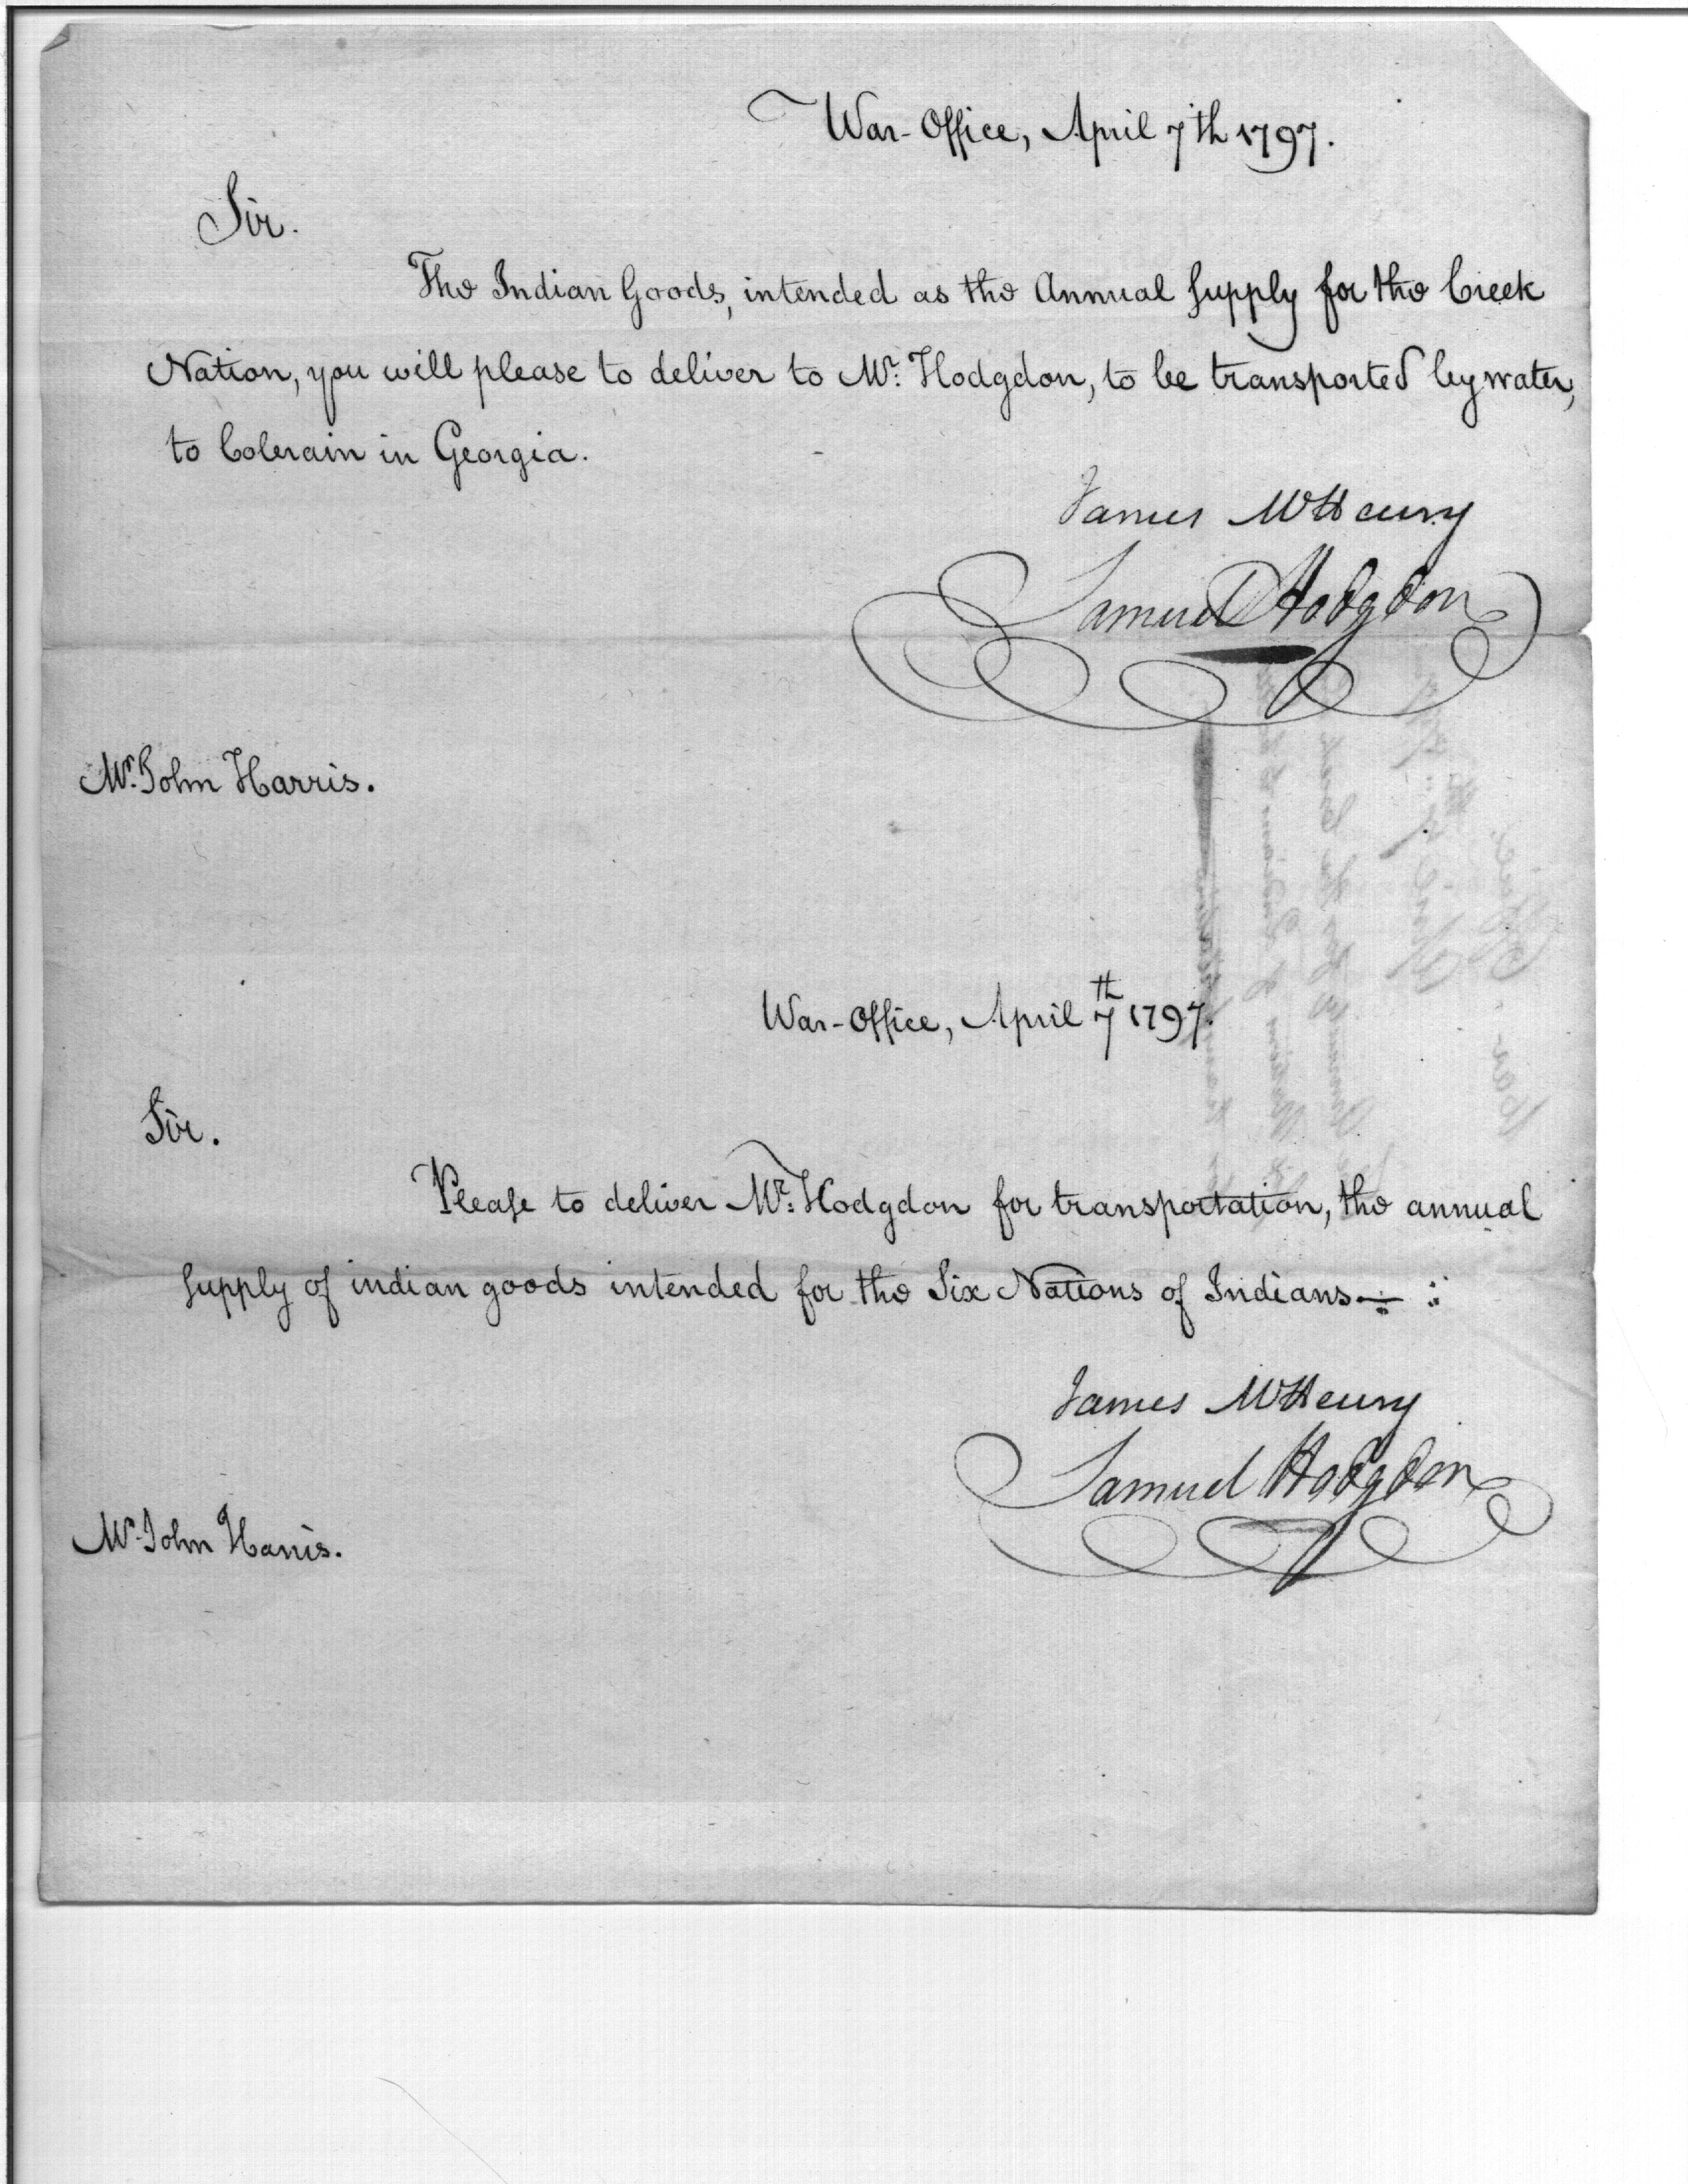 War-Office, April 7th 1797.
Sir.
The Indian Goods, intended as the Annual Supply for the Creek
Nation, you will please to deliver to Mr. Hodgdon, to be transported by water,
to Colerain in Georgia.
James McHenry
Samuel Hodgdon
Mr. John Harris.
War-Office, April 7th 1797.
Sir.
Please to deliver Mr. Hodgdon for transportation, the annual
Supply of indian goods intended for the Six Nations of Indians
James McHenry
Samuel Hodgdon
Mr. John Harris.